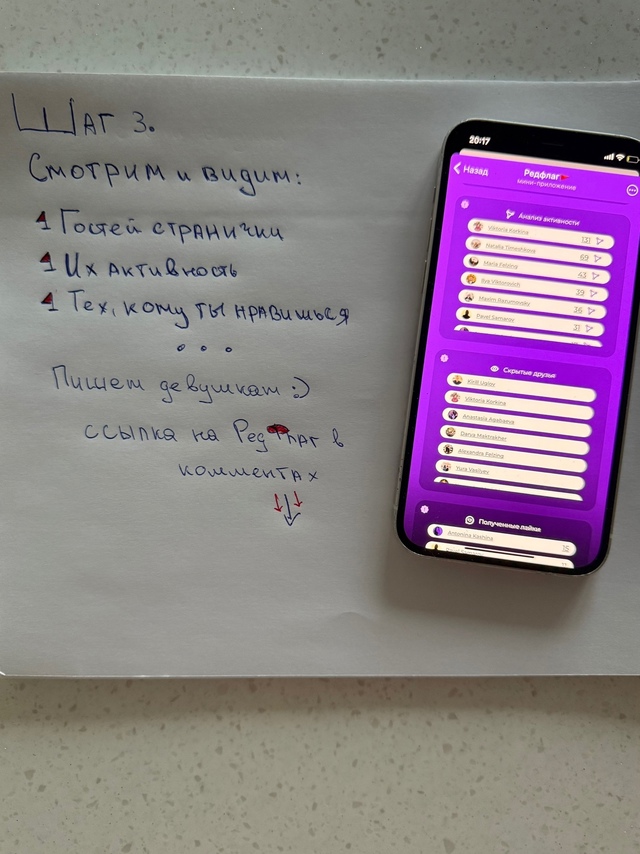 Шаг 3.
Смотрим и видим:
Гостей странички
Их активность
Тех, кому ты нравишься
...
Пишем девушкам :)
ссылка на Редфлаг в
комментах
20:17
Назад
Редфлаг
мини-приложение
Анализ активности
Viktoria Korkina 131
Natalia Timeshkova 69
Maria Felzing 43
Ilya Viktorovich 39
Maxim Razumovsky 36
Pavel Samarov 31
Скрытые друзья
Kirill Uglov
Viktoria Korkina
Anastasia Agabaeva
Darya Makrakher
Alexandra Felzing
Yura Vasilyev
Полученные лайки
Antonina Kashina 15